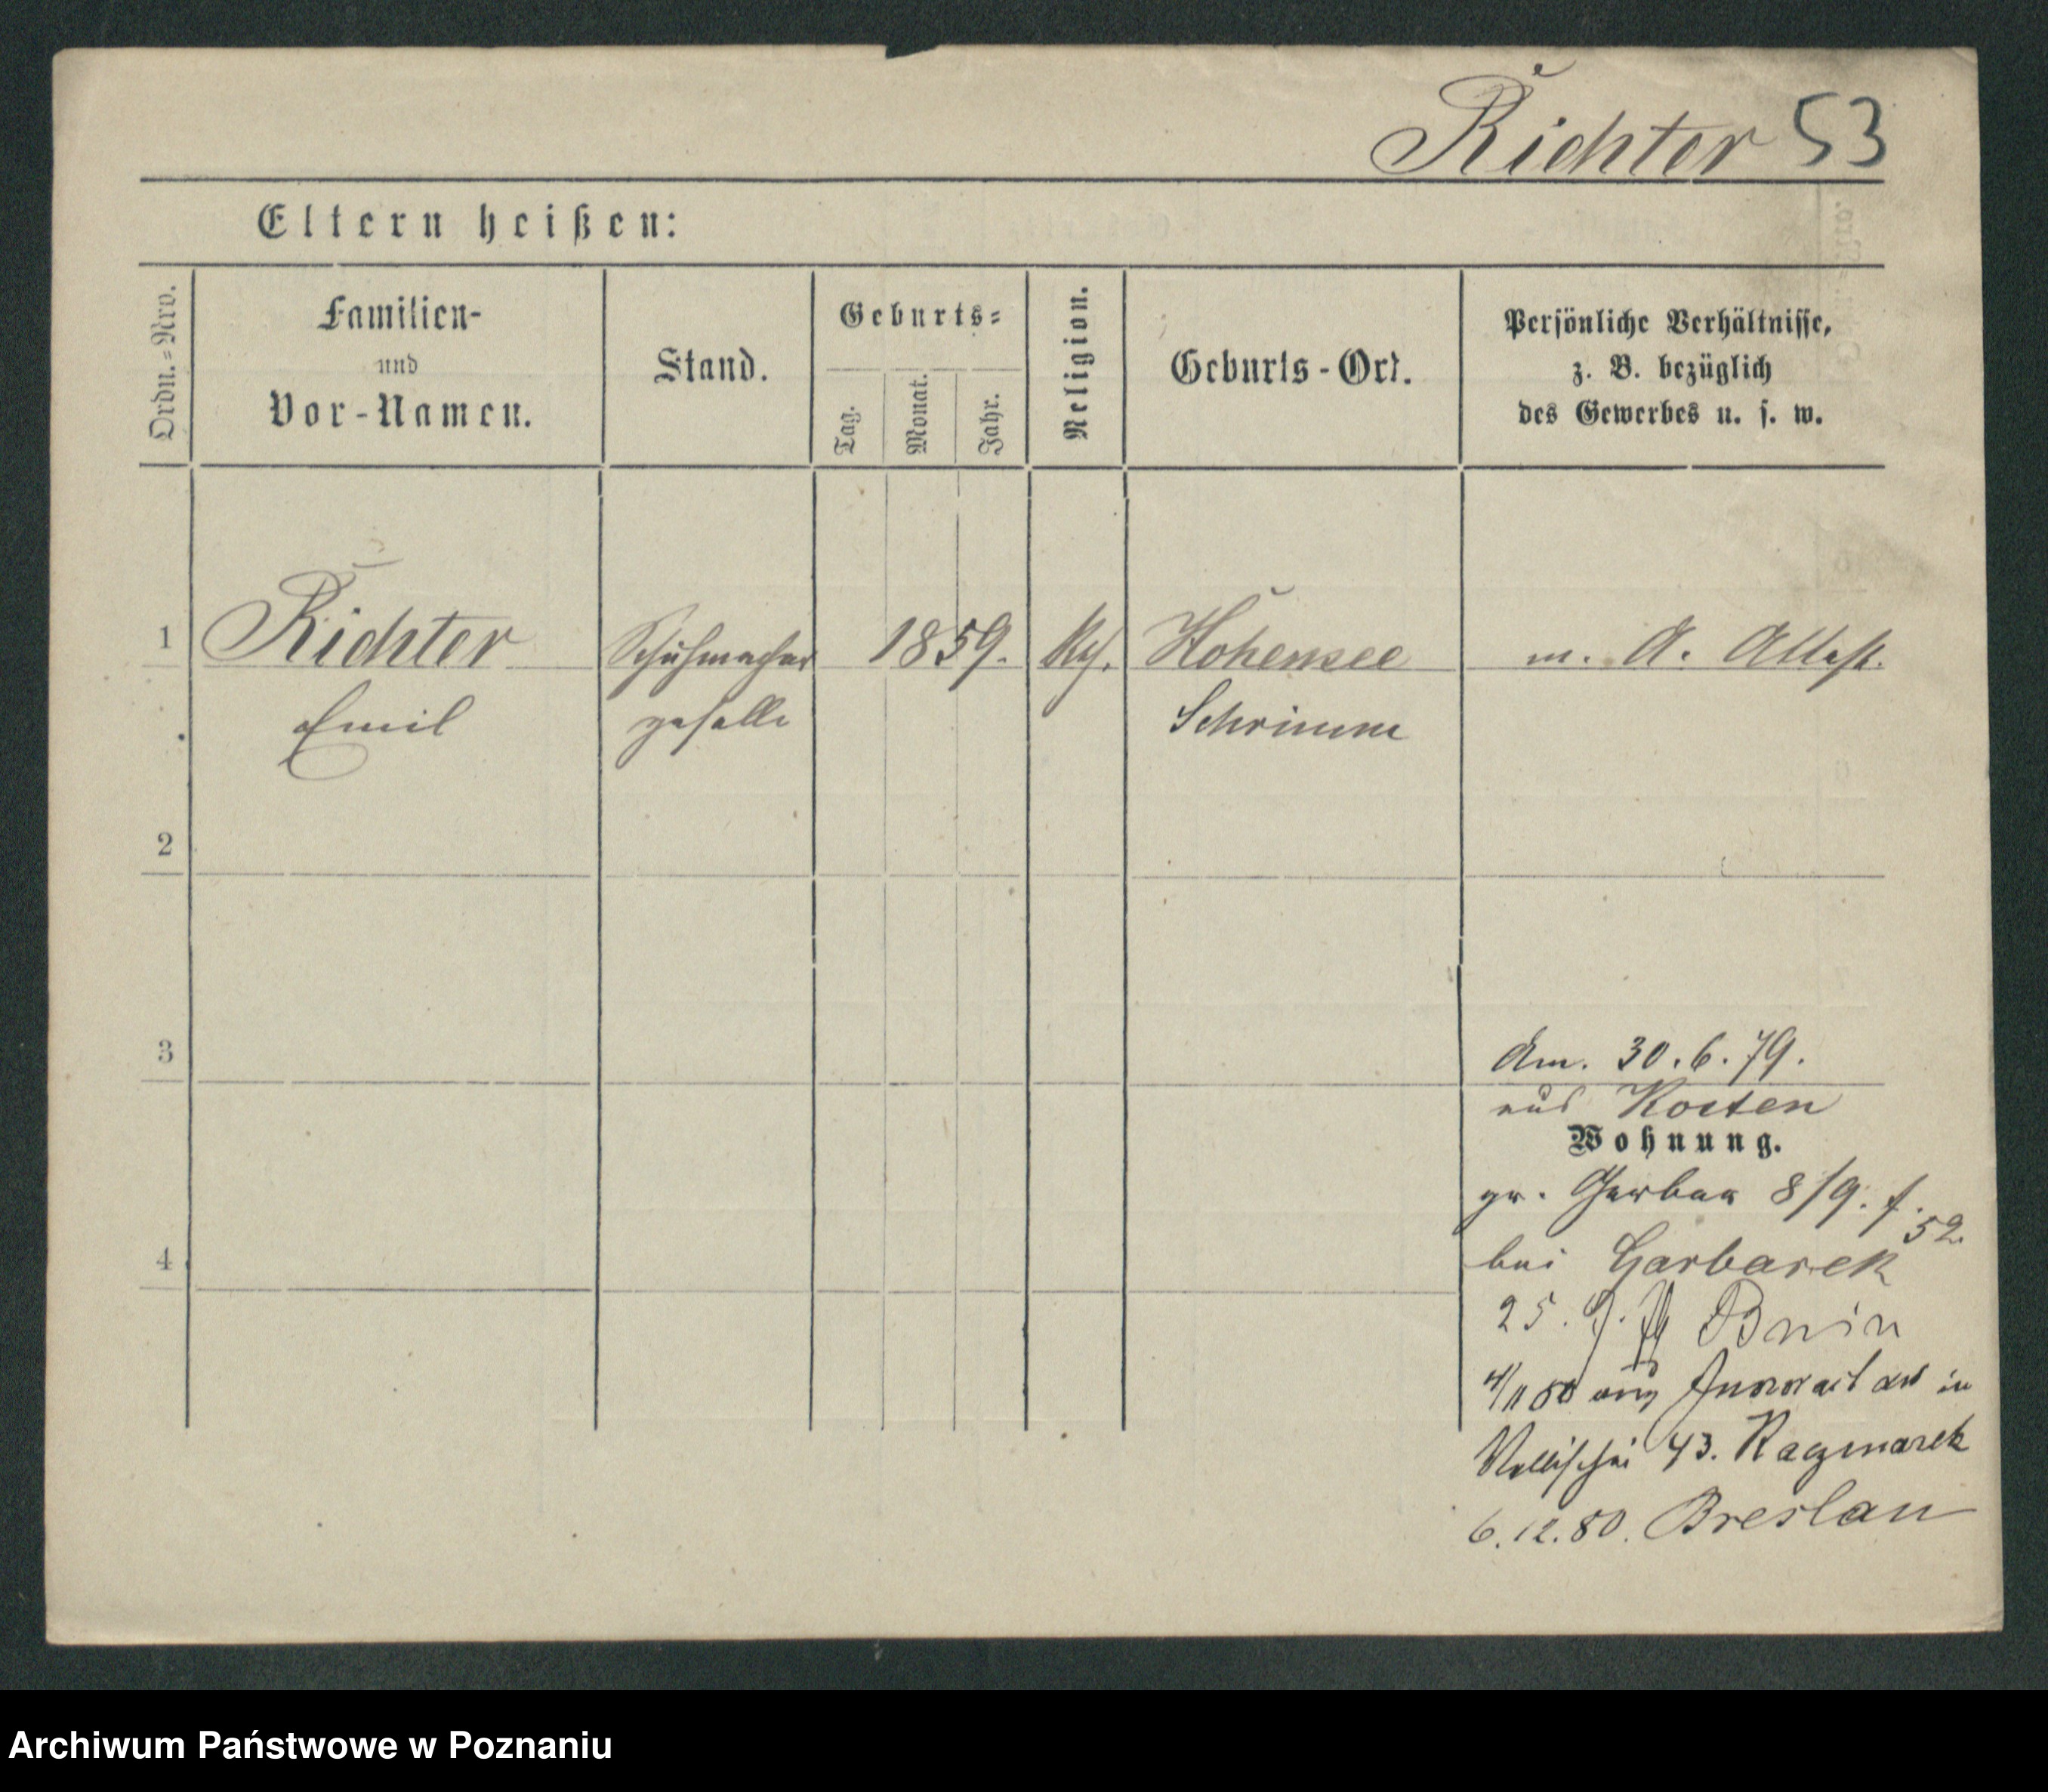 Richter 53
Eltern heißen:
Ordn.=Nro.
Familien-
und
Vor-Namen.
Stand.
Geburts=
Tag.
Monat.
Jahr.
Religion.
Geburts-Ort.
Persönliche Verhältnisse,
z. B. bezüglich
des Gewerbes u. s. w.
1 Richter Schuhmacher 1859. Hohensee m. A. Attest.
Emil geselle Schrimm
2
3
Am. 30.6.79.
aus Kosten
Wohnung.
gr. Gerber 8/9. f. 52.
4
bei Garbarek
25. 9. 79 Bnin
4/11 80 aus in
Wallischei 43. Kaczmarek
6.12.80. Breslau
Archiwum Państwowe w Poznaniu